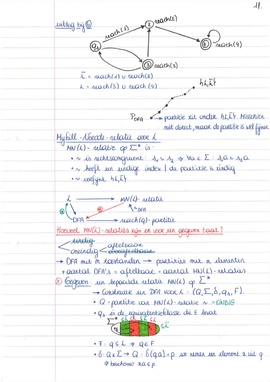 11.
uitleg bij
reach(1)
reach(2)
reach(3)
reach(4)
L̄ = reach(1) ∪ reach(2)
L = reach(3) ∪ reach(4)
{L, L̄}
P_DFA → partitie zit onder {L, L̄}. Misschien
niet direct, maar de partitie is wel fijner
Myhill-Nerode-relatie over L
MN(L)-relatie op Σ*
• ~ is rechtscongruent: s₁ ~ s₂ ⇒ ∀a ∈ Σ: s₁a ~ s₂a
• ~ heeft een eindige index / de partitie is eindig
• ~ verfijnt {L, L̄}
L
MN(L)-relatie
DFA
reach(q)-partitie
Hoeveel MN(L)-relaties zijn er voor een gegeven taal?
eindig
oneindig
aftelbaar
→ DFA met n toestanden → partities met n elementen
→ aantal DFA's = aftelbaar = aantal MN(L)-relaties
Gegeven: een bepaalde relatie MN(L) op Σ*
→ Construeer een DFA voor L: (Q, Σ, δ, q₀, F)
• Q = partitie van MN(L)-relatie ~ = EINDIG
• q₀ is de equivalentieklasse die ε bevat
Σ*
• F: q ⊆ L ⇒ q ∈ F